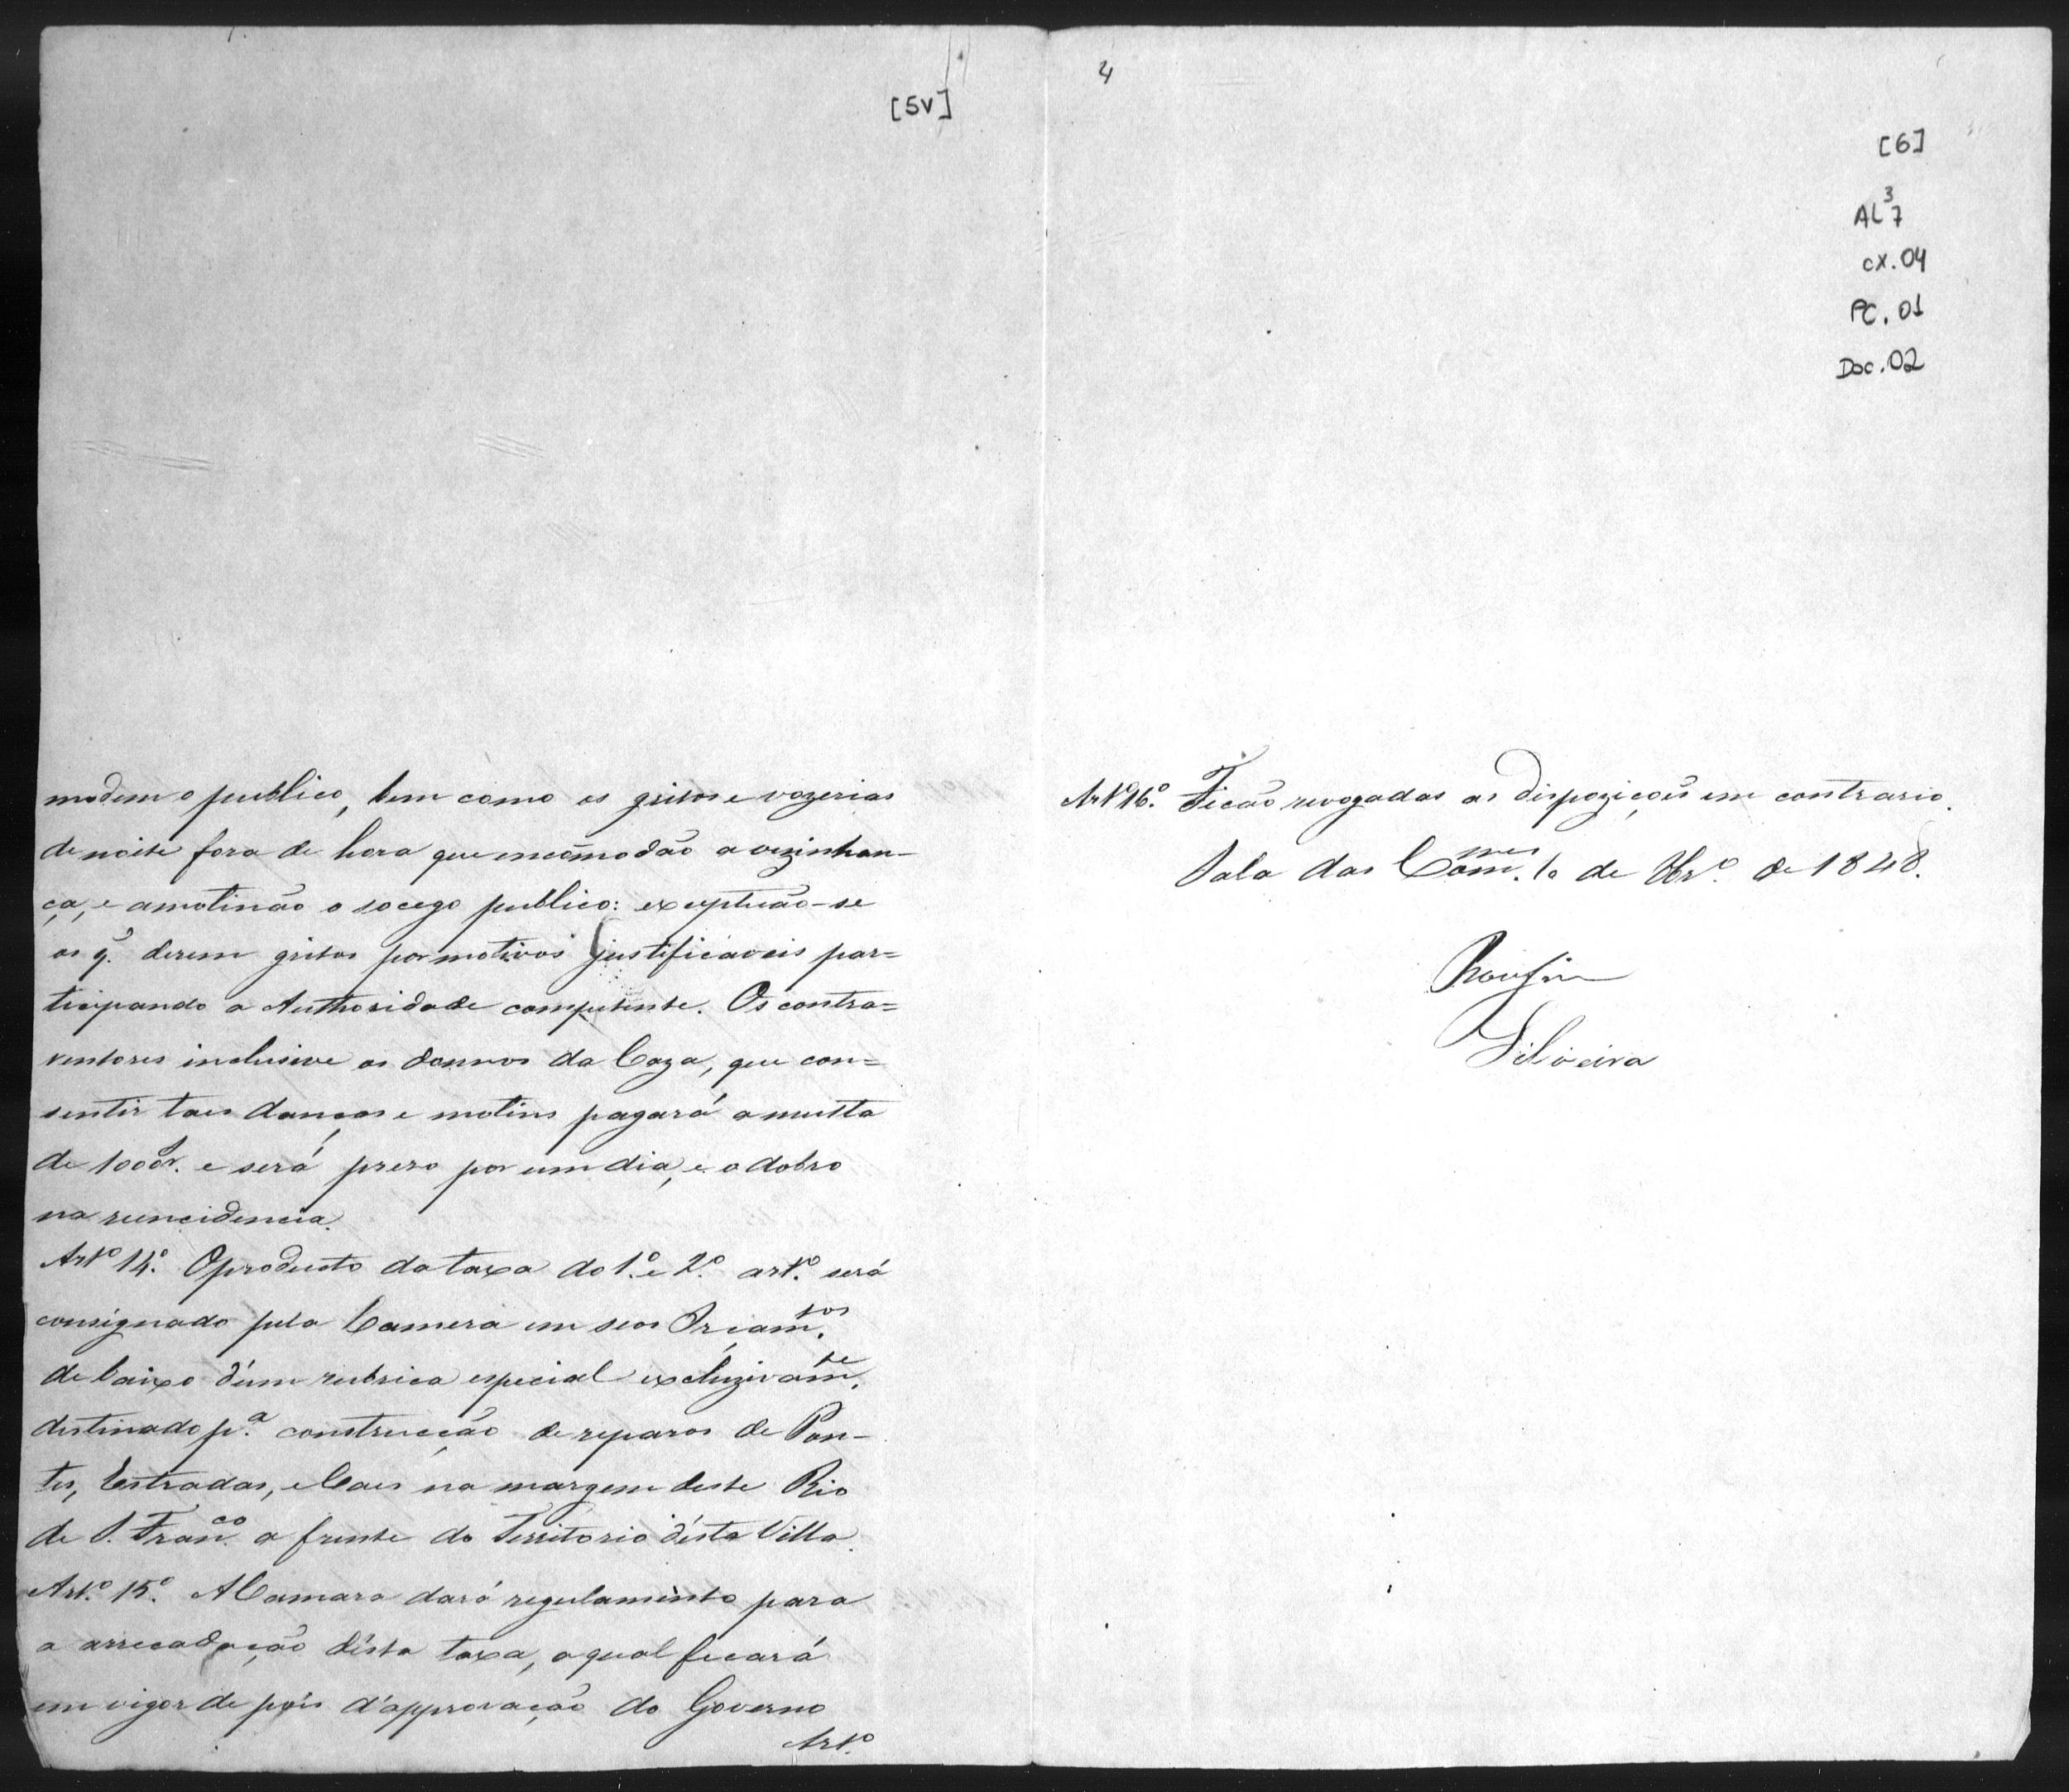 [5V]
modem o publico, bem como os gritos e vozerias
de noite fora de hora que incõmodão a vizinhan-
ça, e amotinão o socego publico: exceptuão-se
os q̃. derem gritos por motivos justificaveis par=
ticipando a Authoridade competente. Os contra=
ventores inclusive os donnos da Caza, que con=
sentir taes danças e motins pagará a multa
de 1000r. e será prezo por um dia, e o dobro
na reincidencia.
Artº 14º. O producto da taxa do 1º. e 2º. artº. será
consignado pela Camera em seos Orçam.tos
de baixo d'um rubrica especial excluzivam.te
destinado pª. construcção de reparos de Pon-
tes, Estradas, e Caes na margem deste Rio
de S. Fran.co a frente do Territorio désta Villa.
Artº. 15º. A Camara dará regulamento para
a arrecadação désta taxa, o qual ficará
em vigor de pois d'approvação do Governo
Artº.
4
[6]
AL 3 7
CX. 04
PC. 01
Doc. 02
Artº 16º. Ficão revogadas as dispoziçoẽs em contrario.
Sala das Com.mes 1o de de 1848.
Silveira